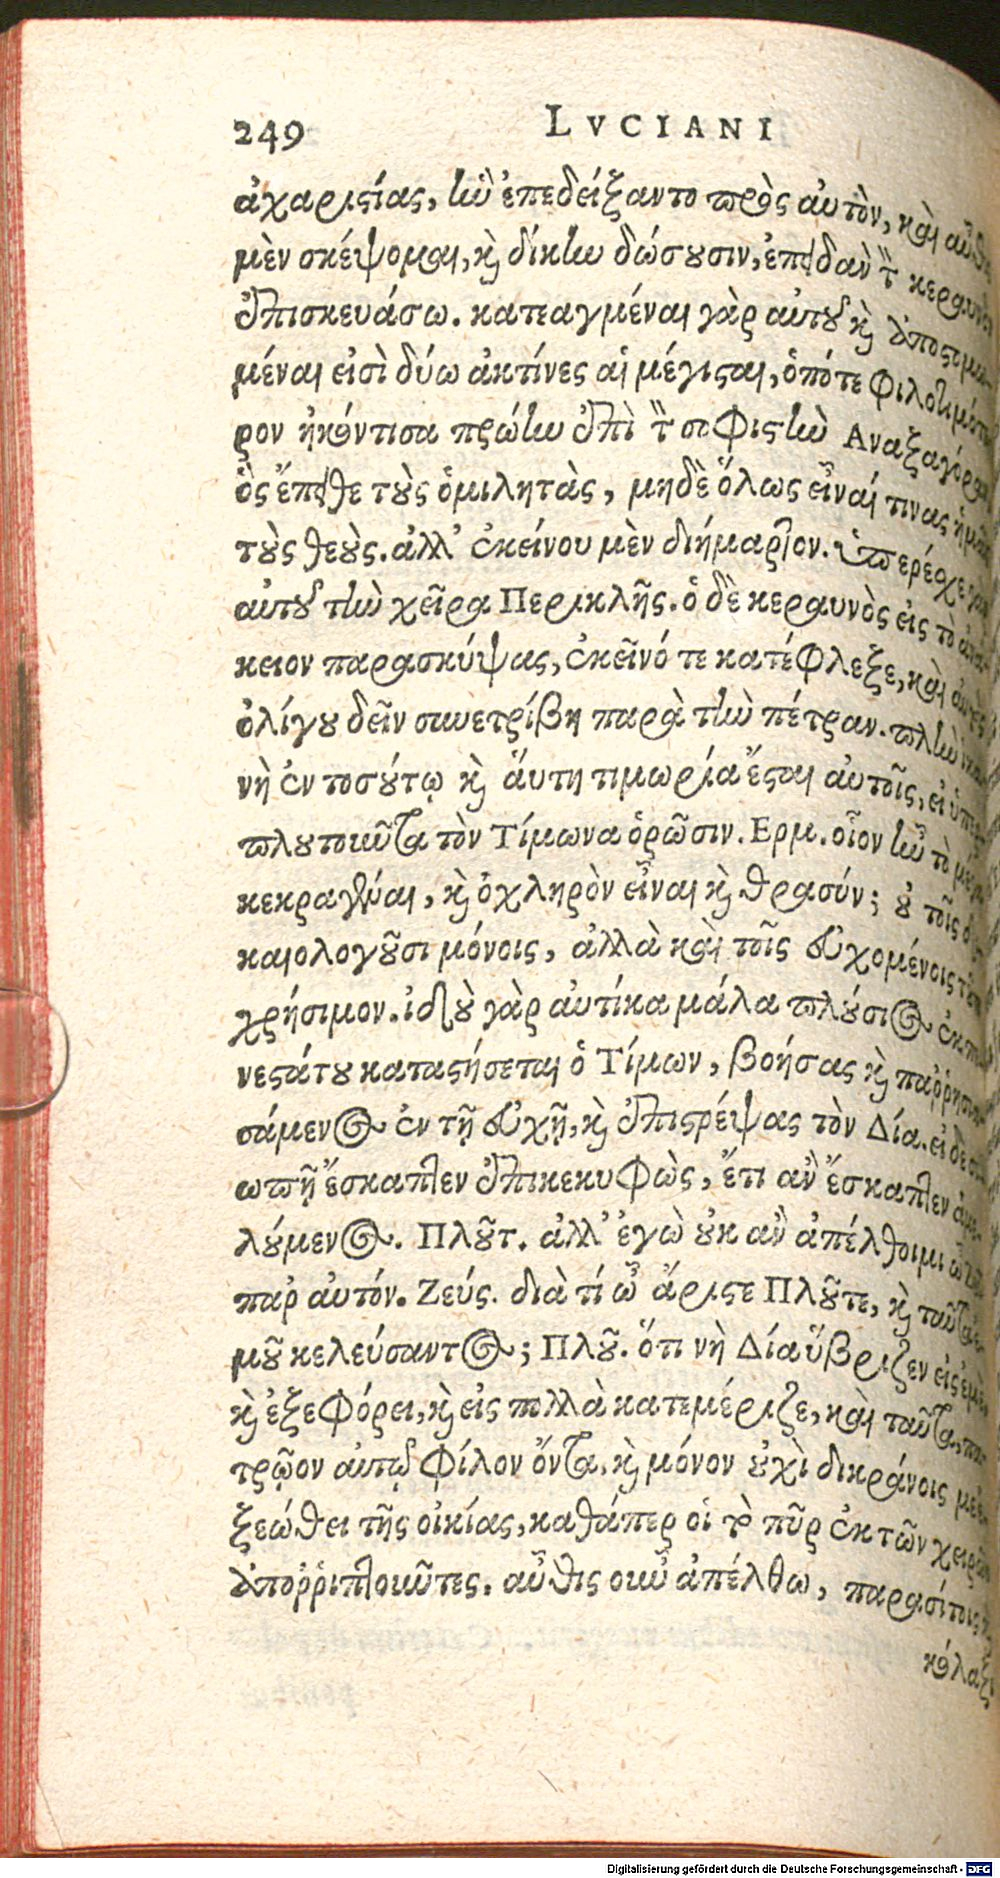 249 LVCIANI
ἀχαριστίας, ἣν ἐπεδείξαντο πρὸς αὐτὸν, καὶ
μὲν σκέψομαι, καὶ δίκην δώσουσιν, ἐπειδὰν τὸν κεραυνὸν
ἐπισκευάσω. κατεαγμέναι γὰρ αὐτοῦ καὶ ἀποστομω-
μέναι εἰσὶ δύω ἀκτίνες αἱ μέγισται, ὁπότε φιλοτιμότε
ρον ἠκόντισα πρώην ἐπὶ τὸν σοφιστὴν Αναξαγόραν
ὃς ἔπειθε τοὺς ὁμιλητὰς, μηδὲ ὅλως εἶναί τινας ἡμᾶς
τοὺς θεούς. ἀλλ' ἐκείνου μὲν διήμαρτον. ὑπερέσχε γὰρ
αὐτοῦ τὴν χεῖρα Περικλῆς. ὁ δὲ κεραυνὸς εἰς τὸ ἀνά-
κειον παρασκήψας, ἐκεῖνό τε κατέφλεξε, καὶ
ὀλίγου δεῖν συνετρίβη παρὰ τὴν πέτραν. πλὴν ἱκα
νὴ ἐν τοσούτῳ καὶ ἅυτη τιμωρία ἔσται αὐτοῖς, εἰ
πλουτοῦντα τὸν Τίμωνα ὁρῶσιν. Ερμ. οἷον ἦν τὸ μέγα
κεκραγέναι, καὶ ὀχληρὸν εἶναι καὶ θρασύν; οὐ τοῖς δι
καιολογοῦσι μόνοις, ἀλλὰ καὶ τοῖς εὐχομένοις
χρήσιμον. ἰδοὺ γὰρ αὐτίκα μάλα πλούσιος ἐκ πε
νεστάτου καταστήσεται ὁ Τίμων, βοήσας καὶ παῤῥησια
σάμενος ἐν τῇ εὐχῇ, καὶ ἐπιστρέψας τὸν Δία. εἰ δὲ σι
ωπῇ ἔσκαπτεν ἐπικεκυφὼς, ἔτι ἂν ἔσκαπτεν ἀμε-
λούμενος. Πλοῦτ. ἀλλ' ἐγὼ οὐκ ἂν ἀπέλθοιμι ὦ Ζεῦ
παρ αὐτόν. Ζεύς. διὰ τί ὦ ἄριστε Πλοῦτε, καὶ ταῦτα ἐ
μοῦ κελεύσαντος; Πλοῦ. ὅτι νὴ Δία ὕβριζεν εἰς ἐμὲ
καὶ ἐξεφόρει, καὶ εἰς πολλὰ κατεμέριζε, καὶ ταῦτα, πα
τρῷον αὐτῷ φίλον ὄντα, καὶ μόνον οὐχὶ δικράνοις με ἐ
ξεώθει τῆς οἰκίας, καθάπερ οἱ τὸ πῦρ ἐκ τῶν χειρῶν
ἀποῤῥιπτοῦντες. αὖθις οὖν ἀπέλθω, παρασίτοις καὶ
κόλαξι
Digitalisierung gefördert durch die Deutsche Forschungsgemeinschaft - DFG